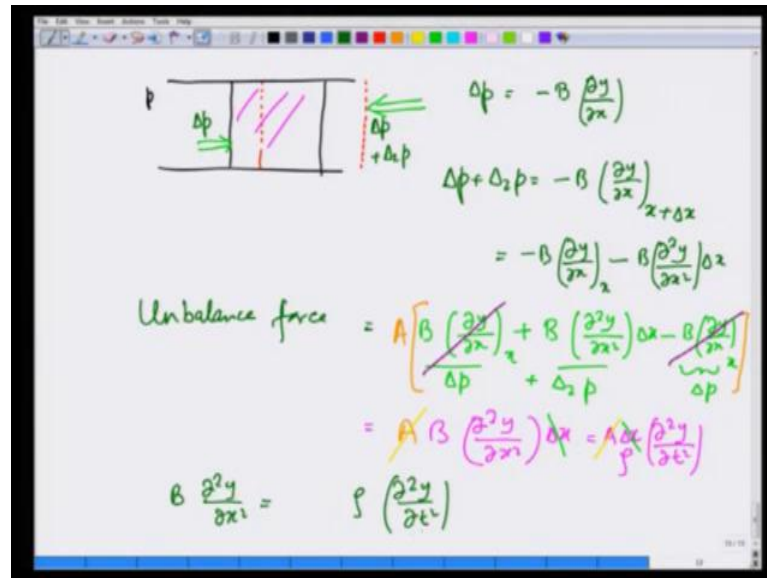 File Edit View Insert Actions Tools Help
p
Δp
Δp
+ Δ₂p
Δp = -B (∂y/∂x)
Δp + Δ₂p = -B (∂y/∂x)ₓ₊Δₓ
= -B (∂y/∂x)ₓ - B (∂²y/∂x²) Δx
Unbalance force = A [ B (∂y/∂x)ₓ + B (∂²y/∂x²) Δx - B (∂y/∂x)ₓ ]
Δp + Δ₂p Δp
= A B (∂²y/∂x²) Δx = A Δx ρ (∂²y/∂t²)
B ∂²y/∂x² = ρ (∂²y/∂t²)